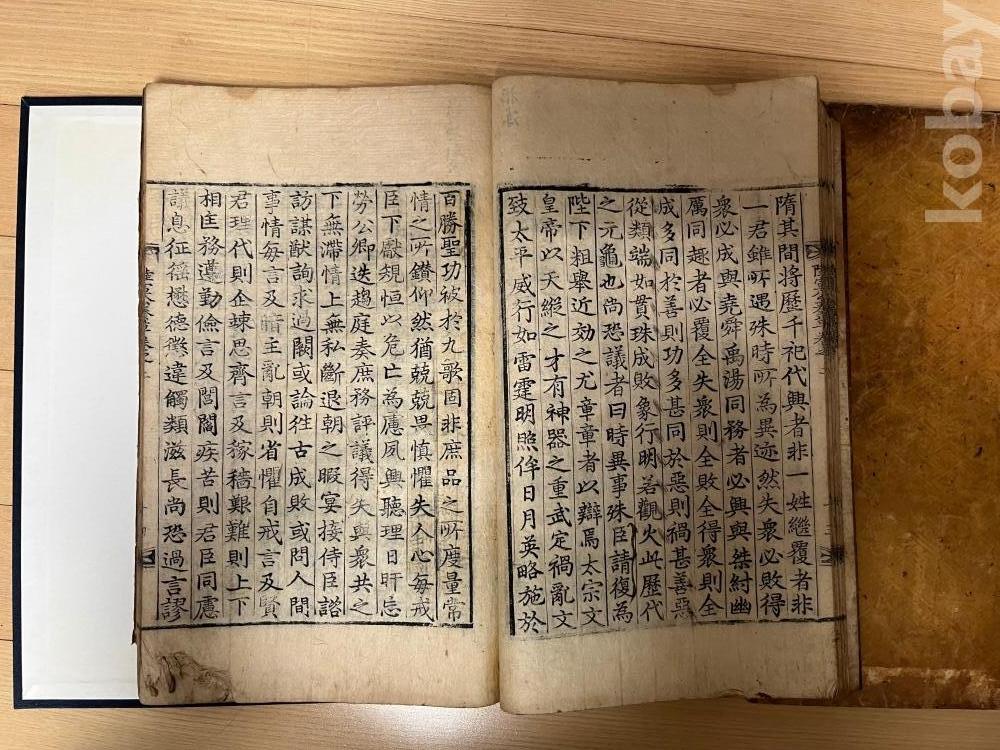 隋其間將歷千祀代興者非一姓繼覆者非
一君雖所遇殊時所為異迹然失衆必敗得
衆必成與堯舜禹湯同務者必興與桀紂幽
厲同趣者必覆全失衆則全敗全得衆則全
成多同於善則功多甚同於惡則禍甚善惡
從類端如貫珠成敗象行明若觀火此歷代
之元龜也尚恐議者曰時異事殊臣請復為
陛下粗舉近効之尤章章者以辯焉太宗文
皇帝以天縱之才有神器之重武定禍亂文
致太平威行如雷霆明照侔日月英略施於
百勝聖功被於九歌固非庶品之所度量常
情之所鑚仰然猶兢兢畏慎懼失人心每戒
臣下獻規恒以危亡為慮夙興聽理日旰忘
勞公卿迭趨庭奏庶務評議得失與衆共之
下無滯情上無私斷退朝之暇宴接侍臣諮
訪謀猷詢求過闕或論往古成敗或問人間
事情每言及暗主亂朝則省懼自戒言及賢
君理代則企竦思齊言及稼穡艱難則上下
相匡務遵勤儉言及閭閻疾苦則君臣同慮
議息征徭懋德懲違觸類滋長尚恐過言謬
kobay